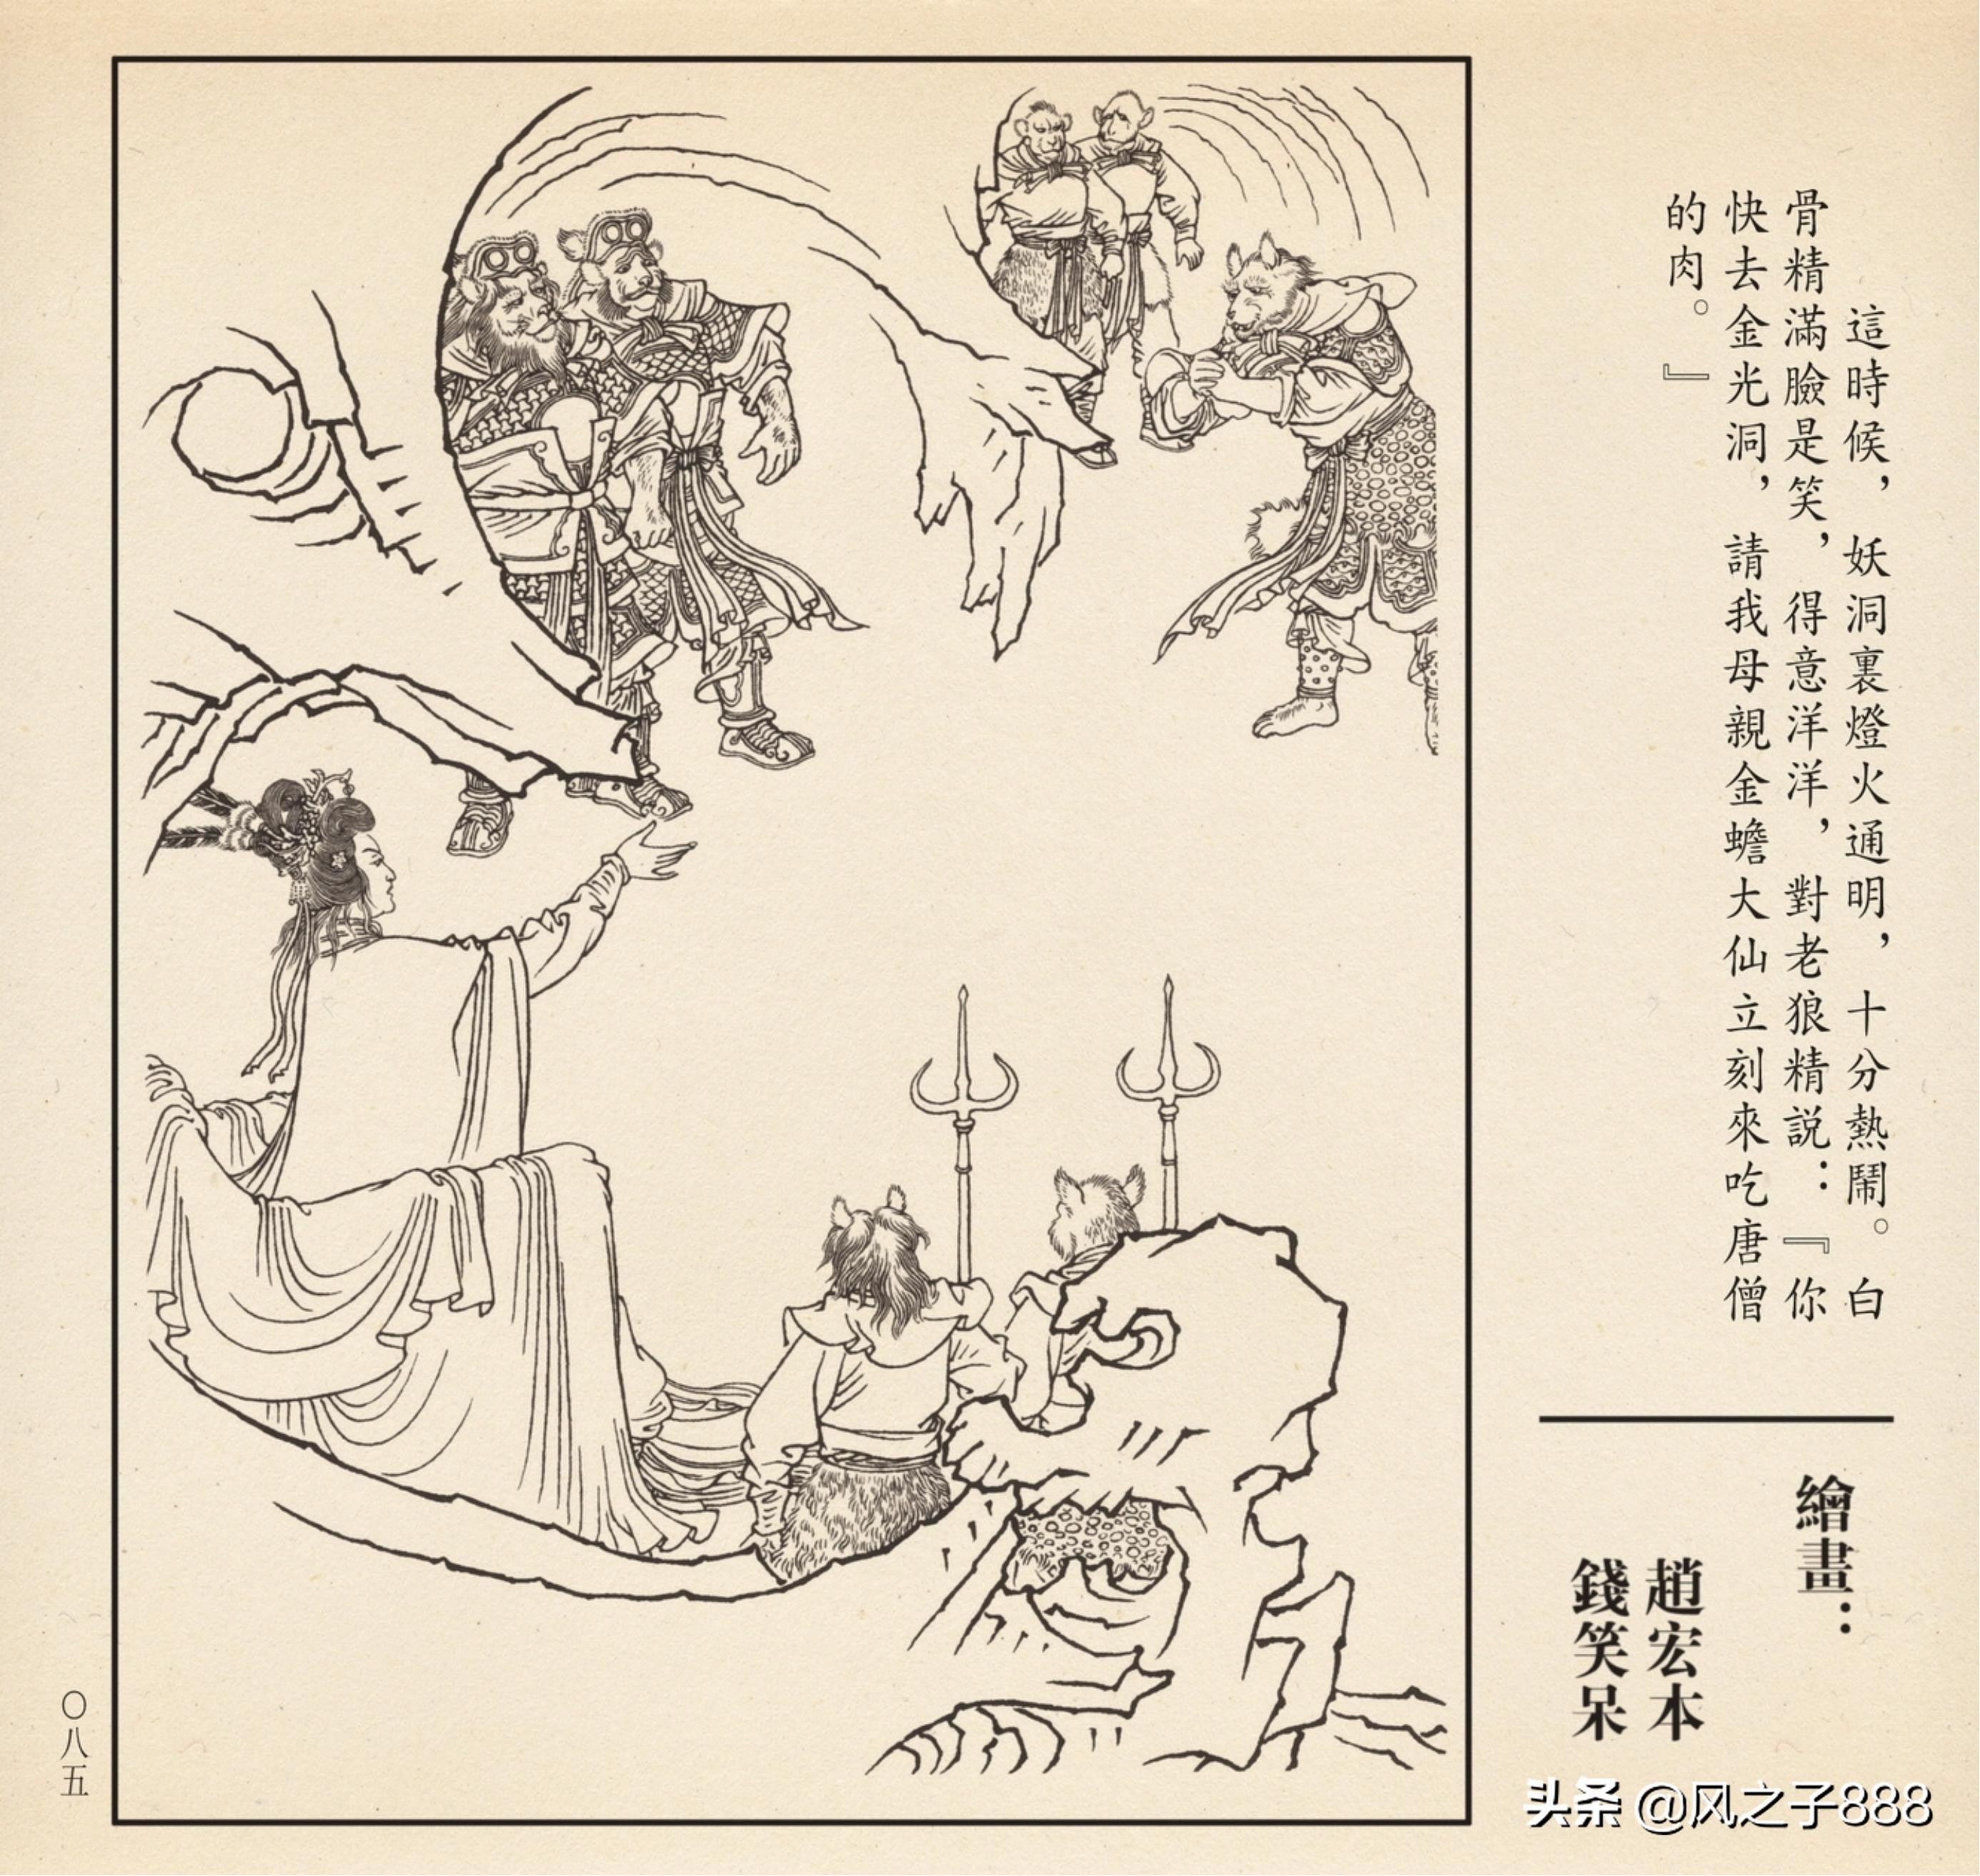 這時候，妖洞裏燈火通明，十分熱鬧。白
骨精滿臉是笑，得意洋洋，對老狼精説：『你
快去金光洞，請我母親金蟾大仙立刻來吃唐僧
的肉。』
繪畫：
趙宏本
錢笑呆
〇八五
头条 @风之子888